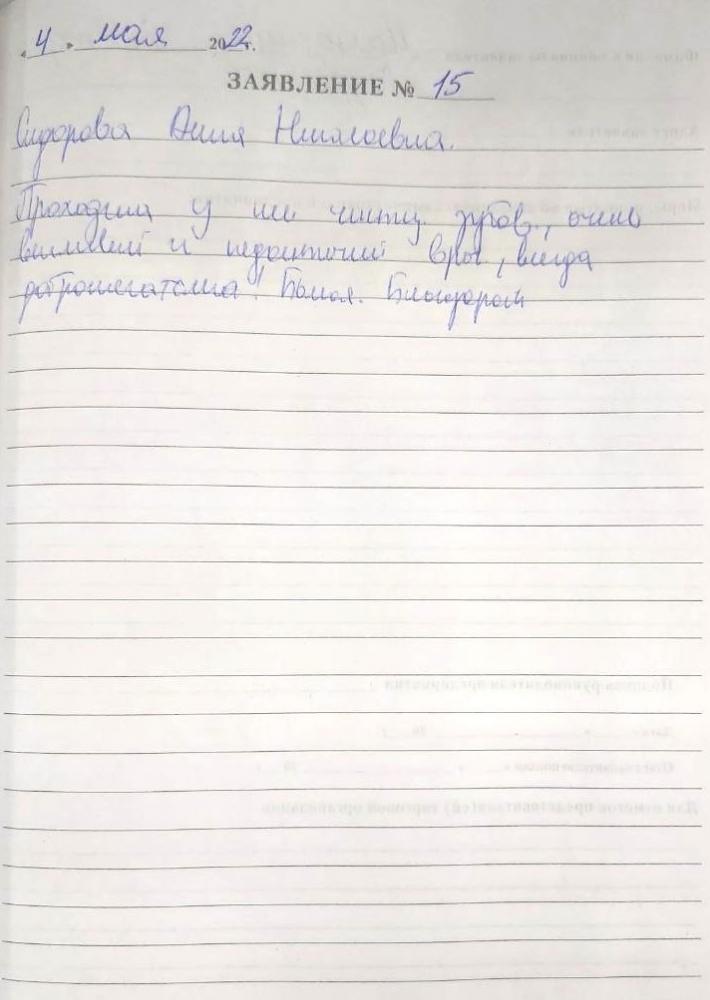 «4» мая 2022г.
ЗАЯВЛЕНИЕ № 15
Сидорова Анна Николаевна.
Проходила у неё чистку зубов, очень
вежливый и педантичный врач, всегда
доброжелательна! Благодарю